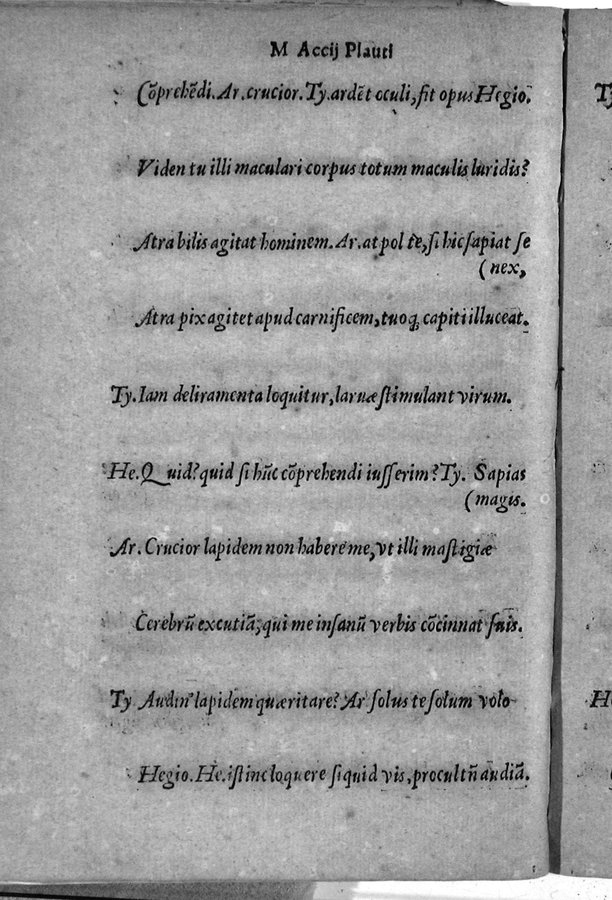 M Accij Plauti
Cõprehẽdi. Ar. crucior. Ty. ardẽt oculi, fit opus Hegio.
Viden tu illi maculari corpus totum maculis luridis?
Atra bilis agitat hominem. Ar. at pol te, si hic sapiat se
(nex,
Atra pix agitet apud carnificem, tuoq; capiti illuceat.
Ty. Iam deliramenta loquitur, laruæ stimulant virum.
He. Quid? quid si hũc cõprehendi iusserim? Ty. Sapias
(magis.
Ar. Crucior lapidem non habere me, vt illi mastigiæ
Cerebrũ excutiã, qui me insanũ verbis cõcinnat suis.
Ty Audin' lapidem quæritare? Ar solus te solum volo
Hegio. He. istinc loquere si quid vis, procul tñ audiã.
Ty
H